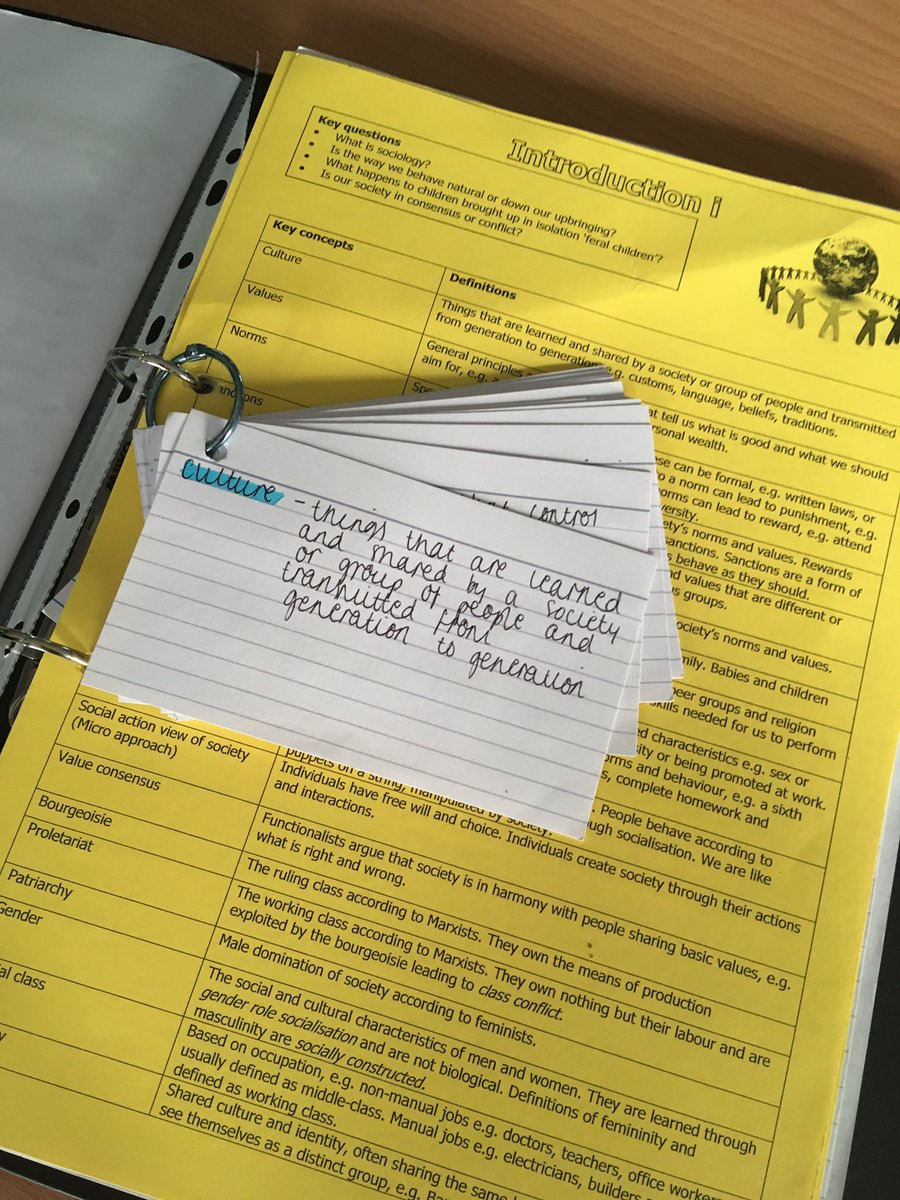 Introduction i
Key questions
What is sociology?
Is the way we behave natural or down our upbringing?
What happens to children brought up in isolation 'feral children'?
Is our society in consensus or conflict?
Key concepts
Definitions
Culture
Things that are learned and shared by a society or group of people and transmitted
from generation to generation e.g. customs, language, beliefs, traditions.
Values
General principles
that tell us what is good and what we should
aim for, e.g. a
personal wealth.
Norms
Spe
se can be formal, e.g. written laws, or
to a norm can lead to punishment, e.g.
norms can lead to reward, e.g. attend
versity.
nctions
ety's norms and values. Rewards
sanctions. Sanctions are a form of
s behave as they should.
control
culture
- things that are learned
and shared by a society
or group of people and
tranmitted from
generation to generation
nd values that are different or
s groups.
ociety's norms and values.
mily. Babies and children
peer groups and religion
skills needed for us to perform
ed characteristics e.g. sex or
sity or being promoted at work.
orms and behaviour, e.g. a sixth
s, complete homework and
. People behave according to
ough socialisation. We are like
puppets on a string, manipulated by society.
Social action view of society
(Micro approach)
Individuals have free will and choice. Individuals create society through their actions
and interactions.
Value consensus
Functionalists argue that society is in harmony with people sharing basic values, e.g.
what is right and wrong.
Bourgeoisie
The ruling class according to Marxists. They own the means of production
Proletariat
The working class according to Marxists. They own nothing but their labour and are
exploited by the bourgeoisie leading to class conflict.
Patriarchy
Male domination of society according to feminists.
Gender
The social and cultural characteristics of men and women. They are learned through
gender role socialisation and are not biological. Definitions of femininity and
masculinity are socially constructed.
al class
Based on occupation, e.g. non-manual jobs e.g. doctors, teachers, office workers
usually defined as middle-class. Manual jobs e.g. electricians, builders
defined as working class.
y
Shared culture and identity, often sharing the same
see themselves as a distinct group, e.g.